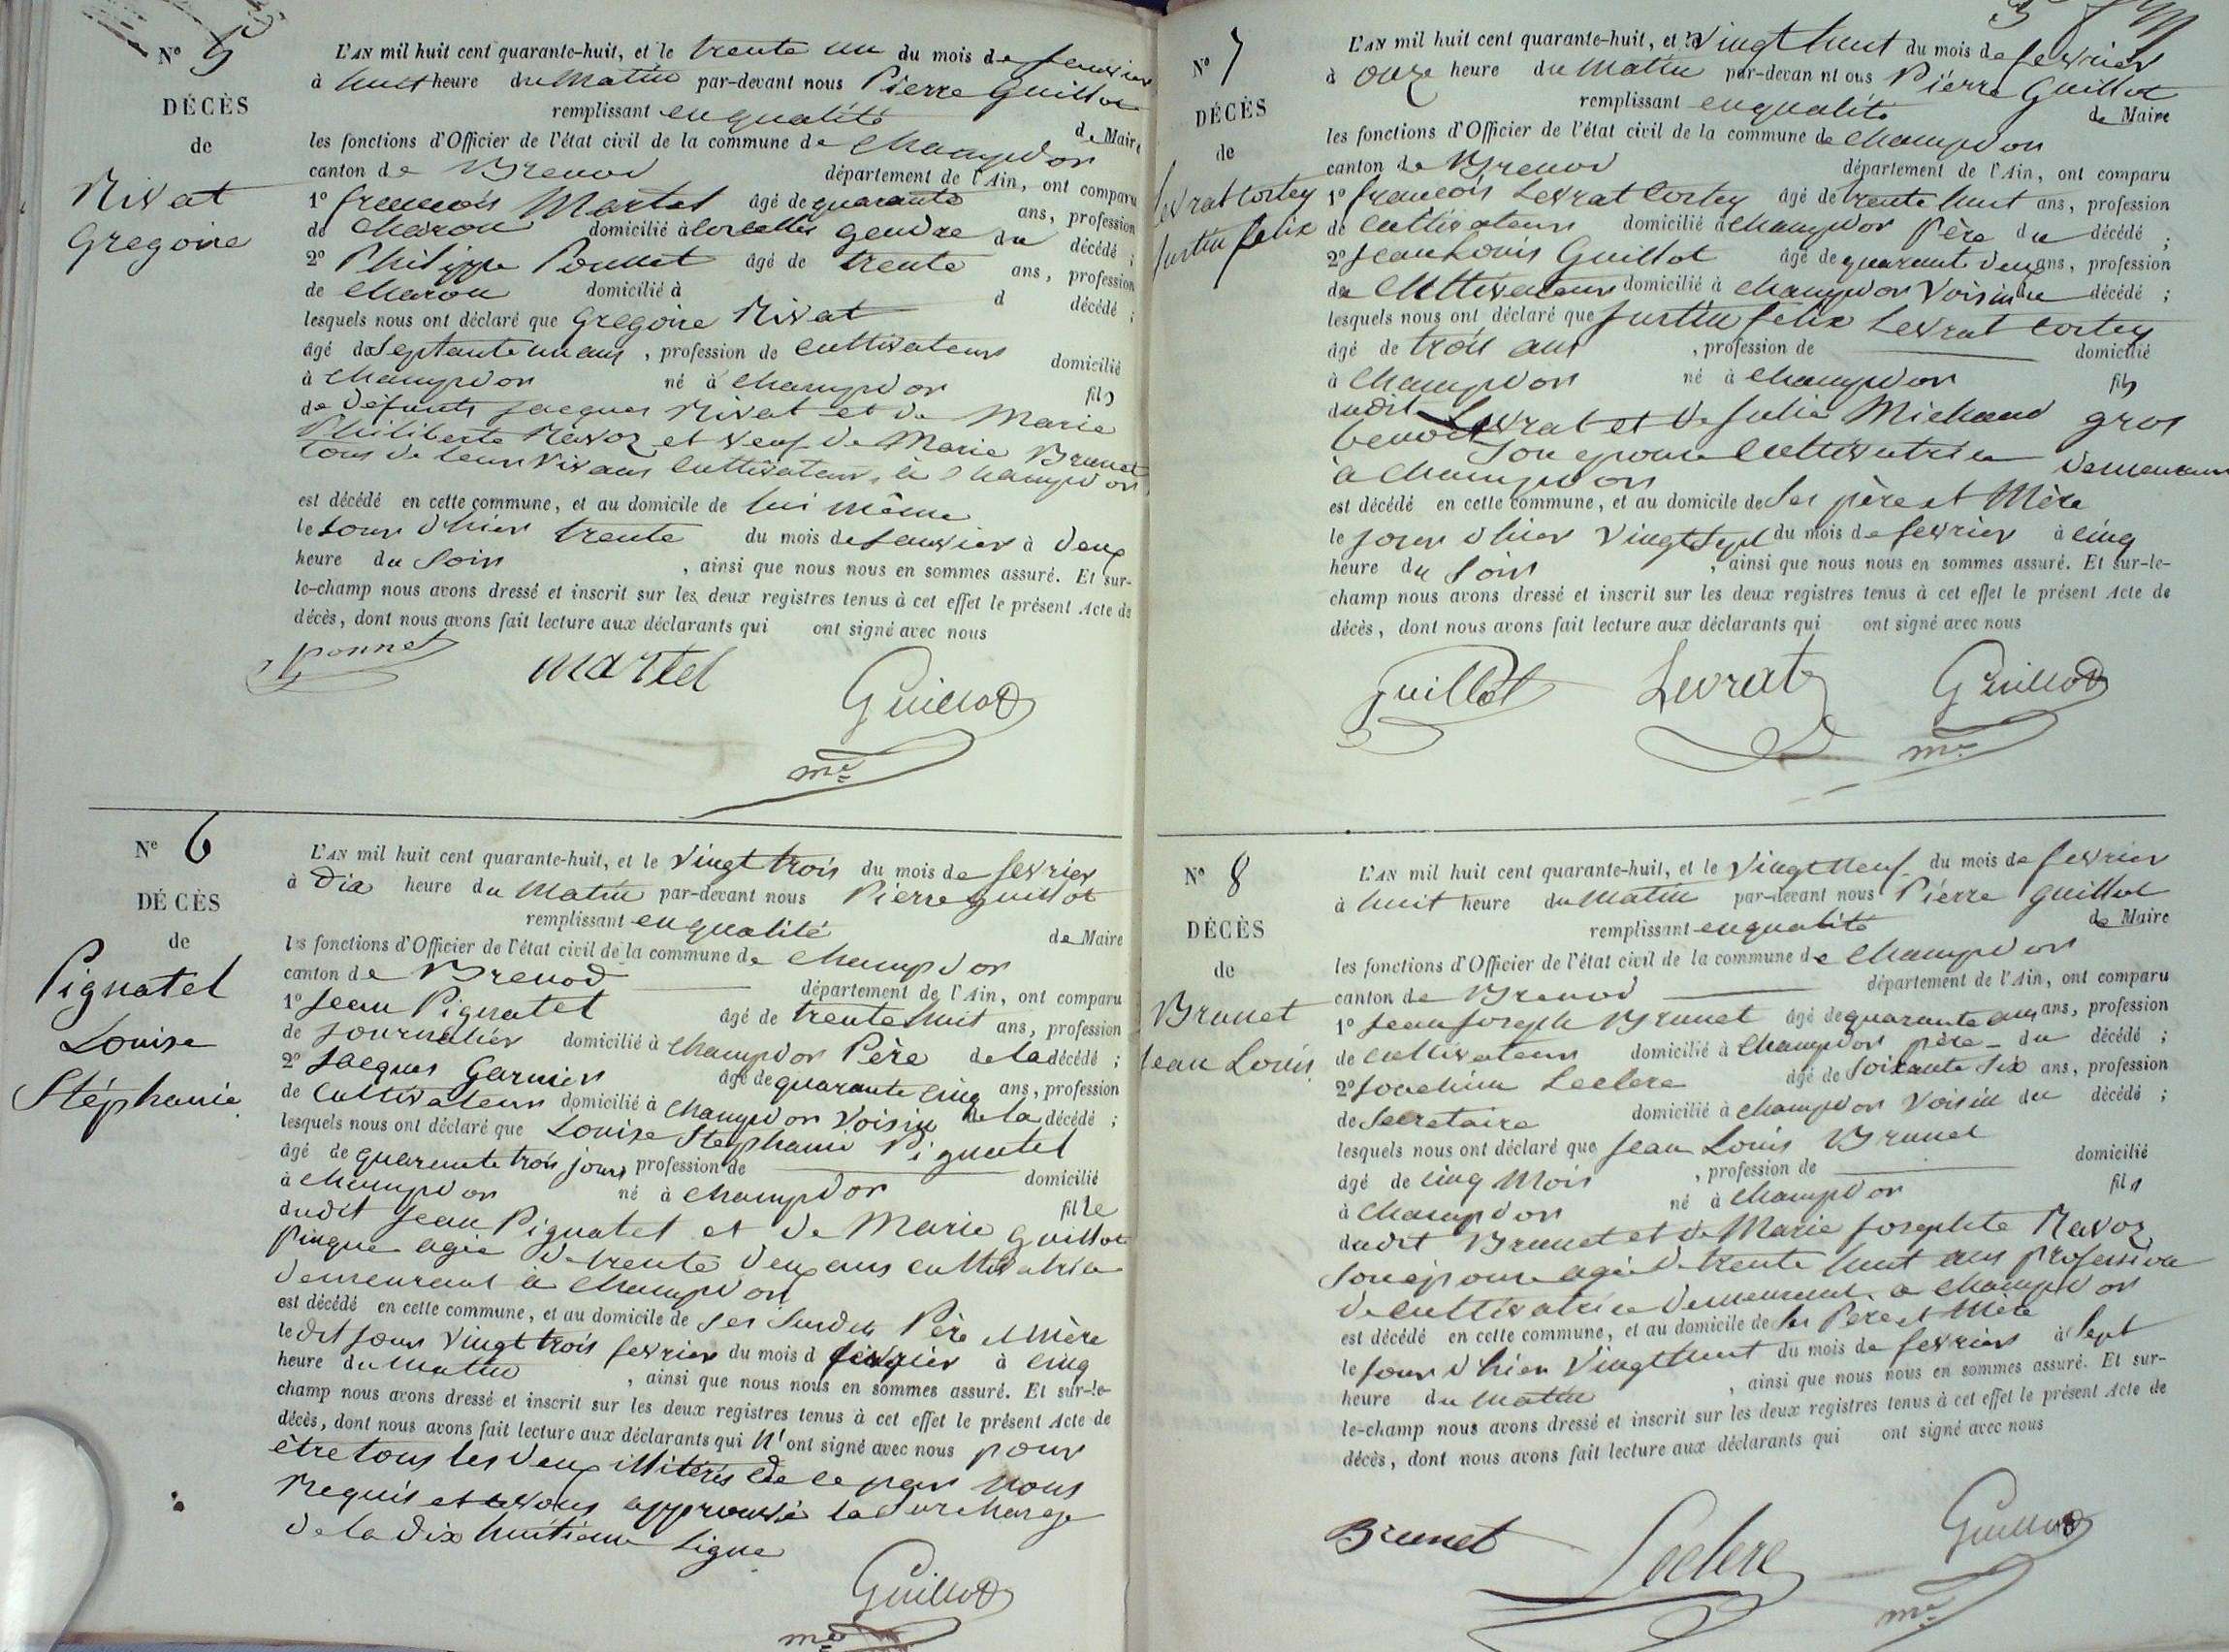 N° 5
DÉCÈS
de
Nivat
Gregoire
L'AN mil huit cent quarante-huit, et le trente un du mois de Janvier
à huit heure du Matin par-devant nous Pierre Guillot
remplissant en qualité de Maire
les fonctions d'Officier de l'état civil de la commune de Champdor
canton de Brenod département de l'Ain, ont comparu
1° françois Martel âgé de quarante ans, profession
de Charon domicilié à Corcelles gendre du décédé ;
2° Philippe Ponnet âgé de trente ans, profession
de Charon domicilié à d décédé ;
lesquels nous ont déclaré que Gregoire Nivat
âgé de Septante un ans, profession de Cultivateur domicilié
à Champdor né à Champdor fils
de défunts Jacques Nivat et de Marie
Philiberte Ravoz et veuf de Marie Brunet
tous de leur vivans Cultivateurs à Champdor
est décédé en cette commune, et au domicile de lui même
le jour d'hier trente du mois de Janvier à deux
heure du Soir, ainsi que nous nous en sommes assuré. Et sur-
le-champ nous avons dressé et inscrit sur les deux registres tenus à cet effet le présent Acte de
décès, dont nous avons fait lecture aux déclarants qui ont signé avec nous
Ponnet martel Guillot
me
N° 6
DÉCÈS
de
Pignatel
Louise
Stéphanie
L'AN mil huit cent quarante-huit, et le vingt trois du mois de fevrier
à dix heure du Matin par-devant nous Pierre Guillot
remplissant en qualité de Maire
les fonctions d'Officier de l'état civil de la commune de Champdor
canton de Brenod département de l'Ain, ont comparu
1° Jean Pignatel âgé de trente huit ans, profession
de Journalier domicilié à Champdor Père de la décédé ;
2° Jacques Garnier âgé de quarante cinq ans, profession
de Cultivateur domicilié à Champdor Voisin de la décédé ;
lesquels nous ont déclaré que Louise Stephanie Pignatel
âgé de quarante trois jours profession de domicilié
à Champdor né à Champdor fille
dudit Jean Pignatel et de Marie Guillot
Pingue agée de trente deux ans cultivatrice
demeurant à Champdor
est décédé en cette commune, et au domicile de ses susdits Père et Mère
ledit jour vingt trois fevrier du mois d fevrier à cinq
heure du Matin, ainsi que nous nous en sommes assuré. Et sur-le-
champ nous avons dressé et inscrit sur les deux registres tenus à cet effet le présent Acte de
décès, dont nous avons fait lecture aux déclarants qui n'ont signé avec nous pour
être tous les deux illitérés de ce par nous
Requis et avons approuvé la surcharge
de la dix huitieme Ligne
Guillot
me
N° 7
DÉCÈS
de
Levrat Cortey
Justin felix
L'AN mil huit cent quarante-huit, et le vingt huit du mois de fevrier
à onze heure du Matin par-devan nt ous Pierre Guillot
remplissant en qualité de Maire
les fonctions d'Officier de l'état civil de la commune de Champdor
canton de Brenod département de l'Ain, ont comparu
1° françois Levrat Cortey âgé de trente huit ans, profession
de Cultivateur domicilié à Champdor Père du décédé ;
2° Jean Louis Guillot âgé de quarant deux ans, profession
de Cultivateur domicilié à Champdor Voisin du décédé ;
lesquels nous ont déclaré que Justin felix Levrat Cortey
âgé de trois ans, profession de domicilié
à Champdor né à Champdor fils
dudit Levrat et de Julie Michaud gros
benoit Son epouse Cultivatrice demeurant
à Champdor
est décédé en cette commune, et au domicile de Ses père et Mère
le jour d'hier vingt Sept du mois de fevrier à cinq
heure du Soir, ainsi que nous nous en sommes assuré. Et sur-le-
champ nous avons dressé et inscrit sur les deux registres tenus à cet effet le présent Acte de
décès, dont nous avons fait lecture aux déclarants qui ont signé avec nous
Guillot Levrat Guillot
me
N° 8
DÉCÈS
de
Brunet
Jean Louis
L'AN mil huit cent quarante-huit, et le vingt Neuf du mois de fevrier
à huit heure du Matin par-devant nous Pierre Guillot
remplissant en qualité de Maire
les fonctions d'Officier de l'état civil de la commune de Champdor
canton de Brenod département de l'Ain, ont comparu
1° Jean Joseph Brunet âgé de quarante ans, profession
de Cultivateur domicilié à Champdor père du décédé ;
2° Joachim Leclerc âgé de Soixante Six ans, profession
de Secretaire domicilié à Champdor Voisin du décédé ;
lesquels nous ont déclaré que Jean Louis Brunet
âgé de Cinq Mois, profession de domicilié
à Champdor né à Champdor fils
dudit Brunet et de Marie Josephte Ravoz
Son épouse agée de trente huit ans profession
de Cultivatrice demeurant à Champdor
est décédé en cette commune, et au domicile de Ses Père et Mère
le jour d'hier vingt huit du mois de fevrier à Sept
heure du Matin, ainsi que nous nous en sommes assuré. Et sur-
le-champ nous avons dressé et inscrit sur les deux registres tenus à cet effet le présent Acte de
décès, dont nous avons fait lecture aux déclarants qui ont signé avec nous
Brunet Leclerc Guillot
me